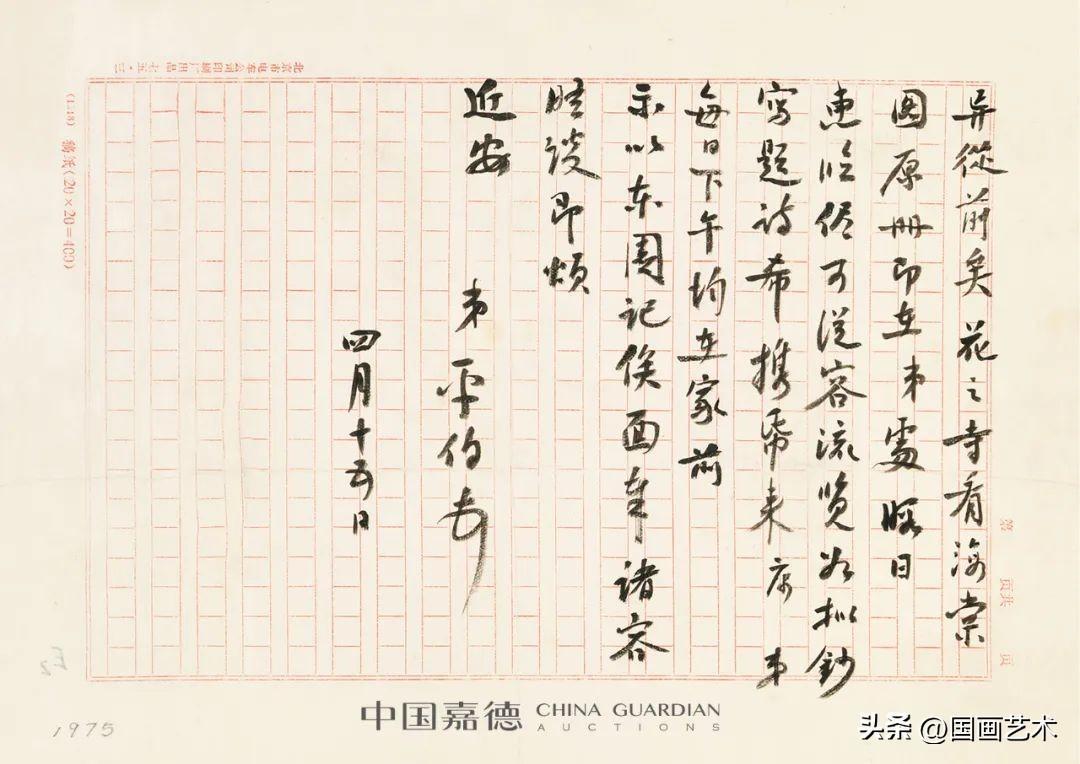 异從前矣花之寺看海棠
圖原册即在弟處暇日
惠临侭可從容流览如拟鈔
写题诗希携帋来 弟
每日下午均在家前
示以东周记俟面奉诸容
晤谈即颂
近安 弟平伯
四月十五日
北京市电车公司印刷厂出品 七五·三
稿纸(20×20=400)
第 页共 页
1975
中国嘉德 CHINA GUARDIAN
AUCTIONS
头条 @国画艺术